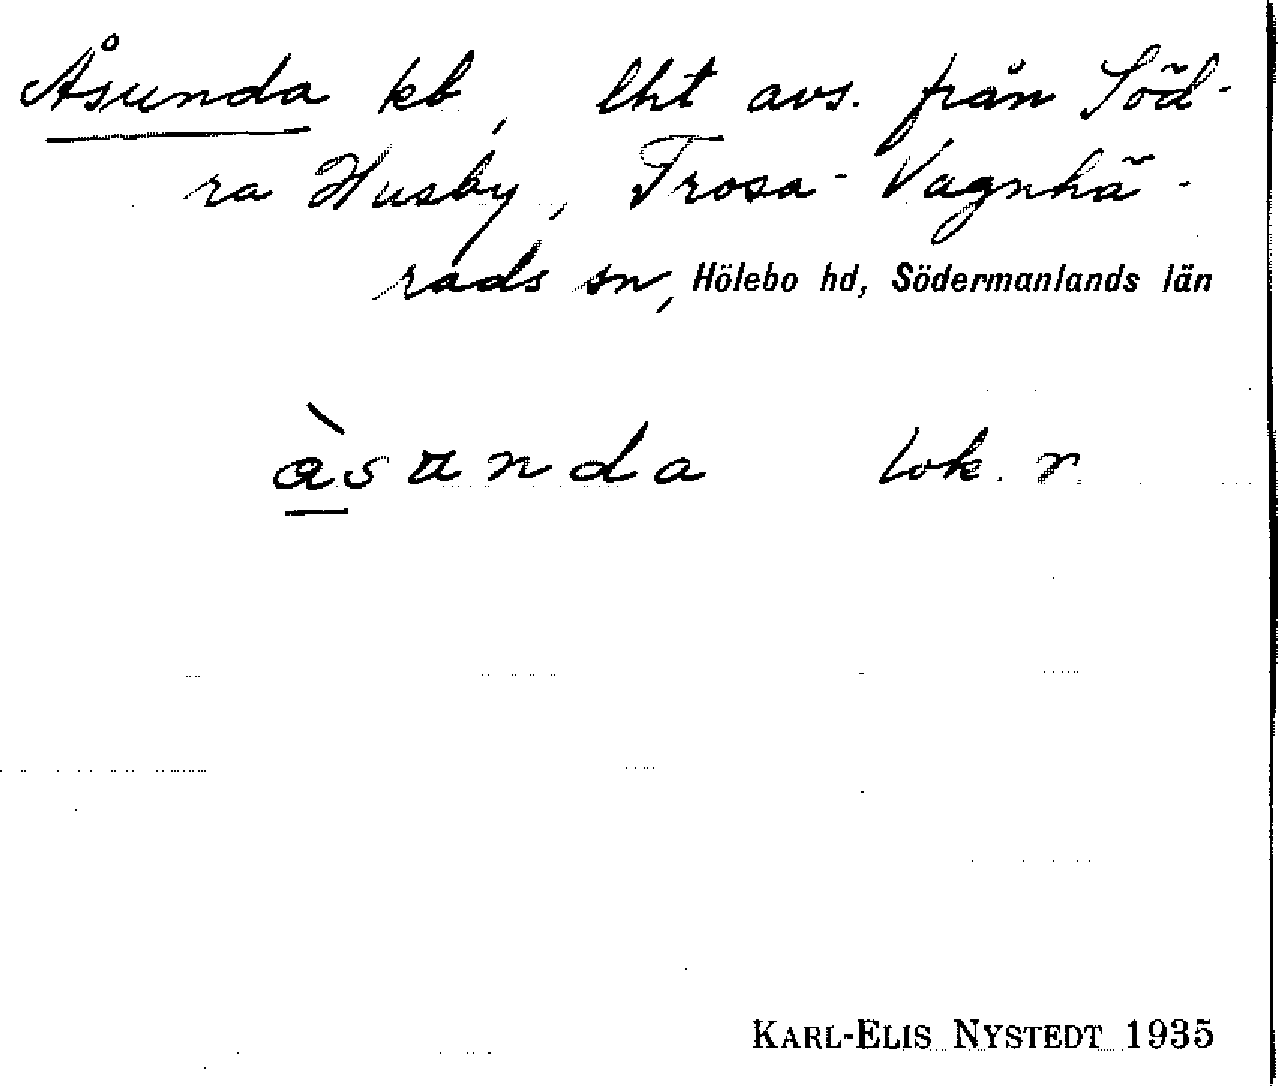 Åsunda kb, lht avs. från Söd-
ra Husby, Trosa-Vagnhä-
rads sn, Hölebo hd, Södermanlands län
å̀sunda lok. r.
KARL-ELIS NYSTEDT 1935